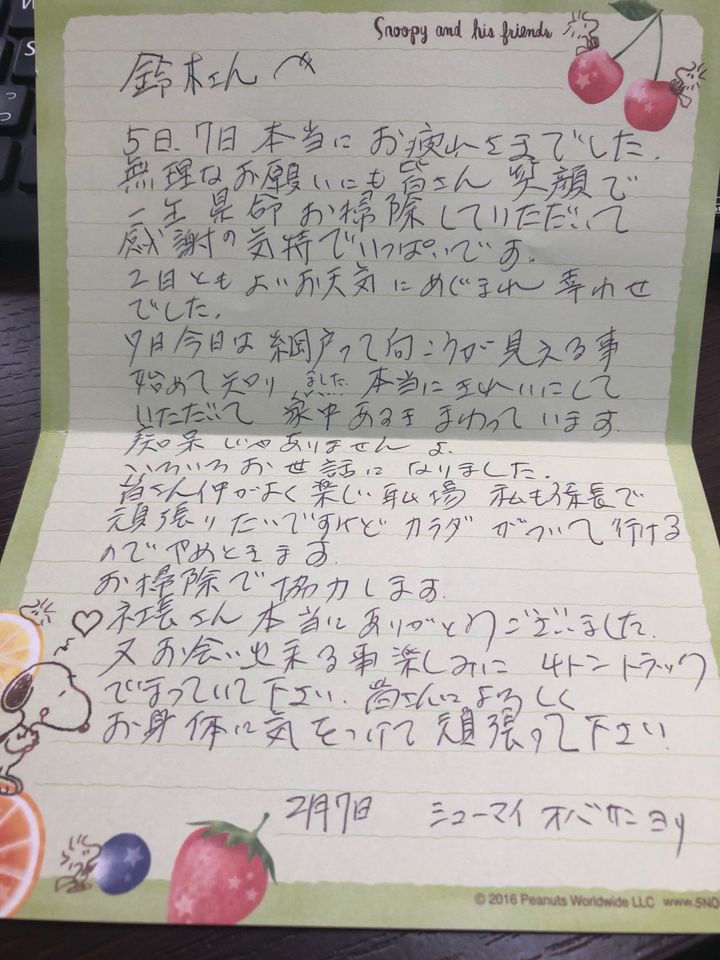 Snoopy and his friends
鈴木さんへ
5日、7日 本当に お疲れさまでした。
無理なお願いにも 皆さん 笑顔で
一生県命 お掃除していただいて
感謝の気持でいっぱいです。
2日ともよいお天気にめぐまれ 幸わせ
でした。
7日今日は 網戸って向こうが見える事
始めて知り ました 本当にきれいにして
いただいて 家中あるきまわっています。
痴呆じゃありませんよ。
いろいろお世話になりました。
皆さん仲がよく楽しい職場 私も係長で
頑張りたいですけど カラダがついて行ける
のでやめときます。
お掃除で協力します。
社長さん 本当にありがとうございました。
又お会い出来る事楽しみに 4トントラック
でまっていて下さい。皆さんによろしく
お身体に気をつけて頑張って下さい
2月7日 シューマイ オバサンヨリ
© 2016 Peanuts Worldwide LLC www.SNO